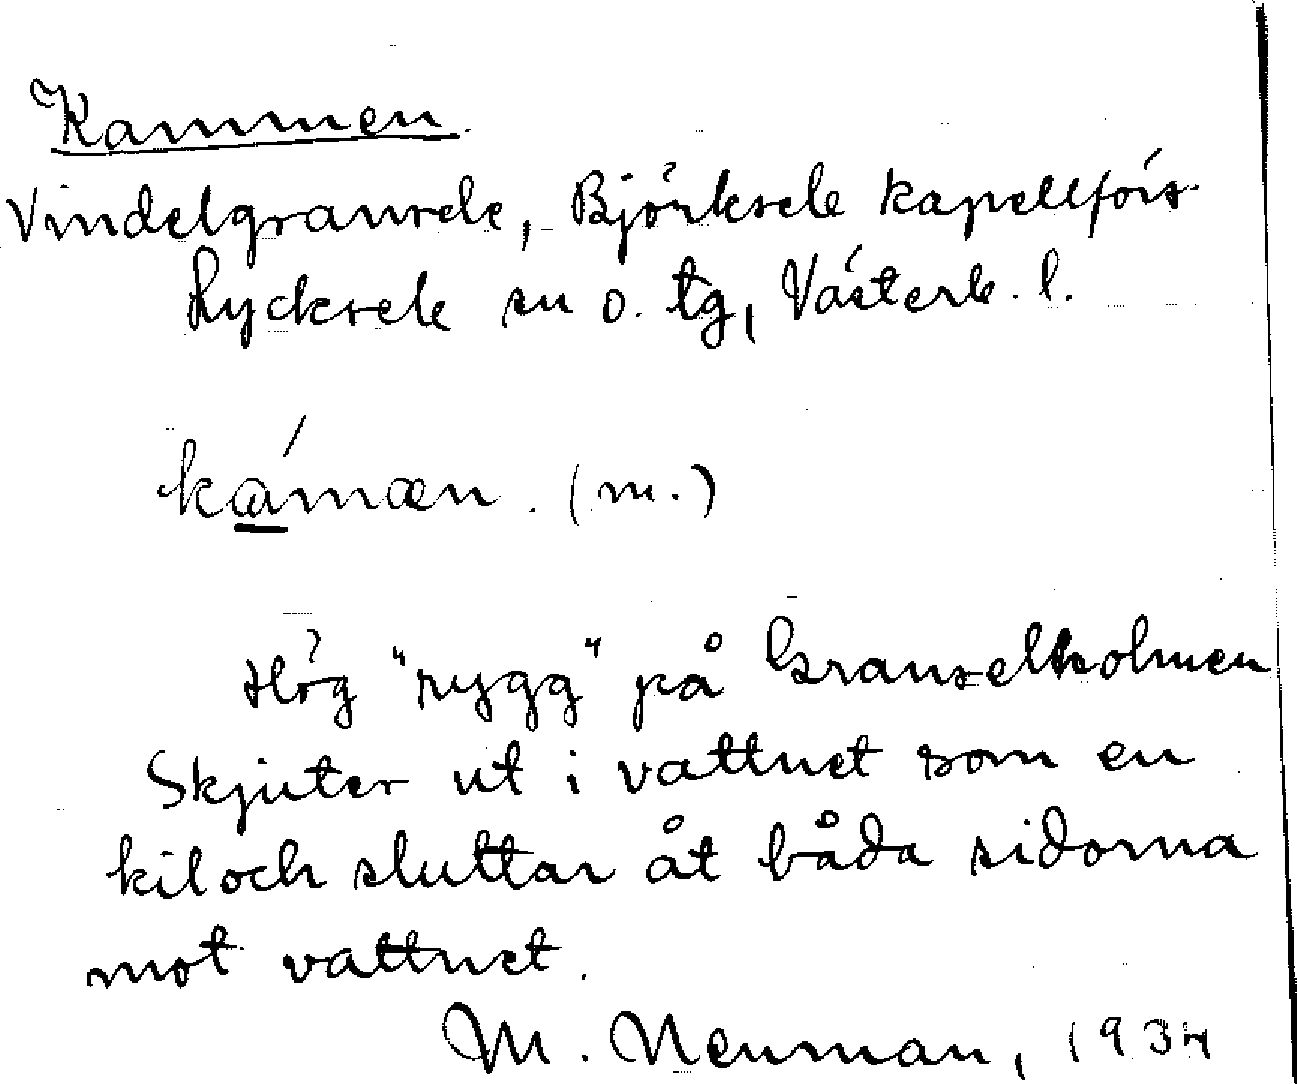 Kammen.
Vindelgransele, Björksele kapellförs.
Lycksele sn o. tg, Västerb. l.
kámæn. (m.)
Hög "rygg" på Granselholmen
Skjuter ut i vattnet som en
kil och sluttar åt båda sidorna
mot vattnet.
M. Neuman, 1934